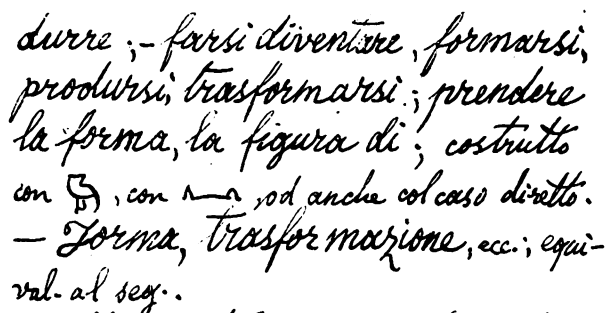 durre ;– farsi diventare, formarsi,
prodursi, trasformarsi ; prendere
la forma, la figura di ; costrutto
con 𓅓, con 𓐝, od anche col caso diretto.
— Forma, trasformazione, ecc.; equi-
val. al seg..